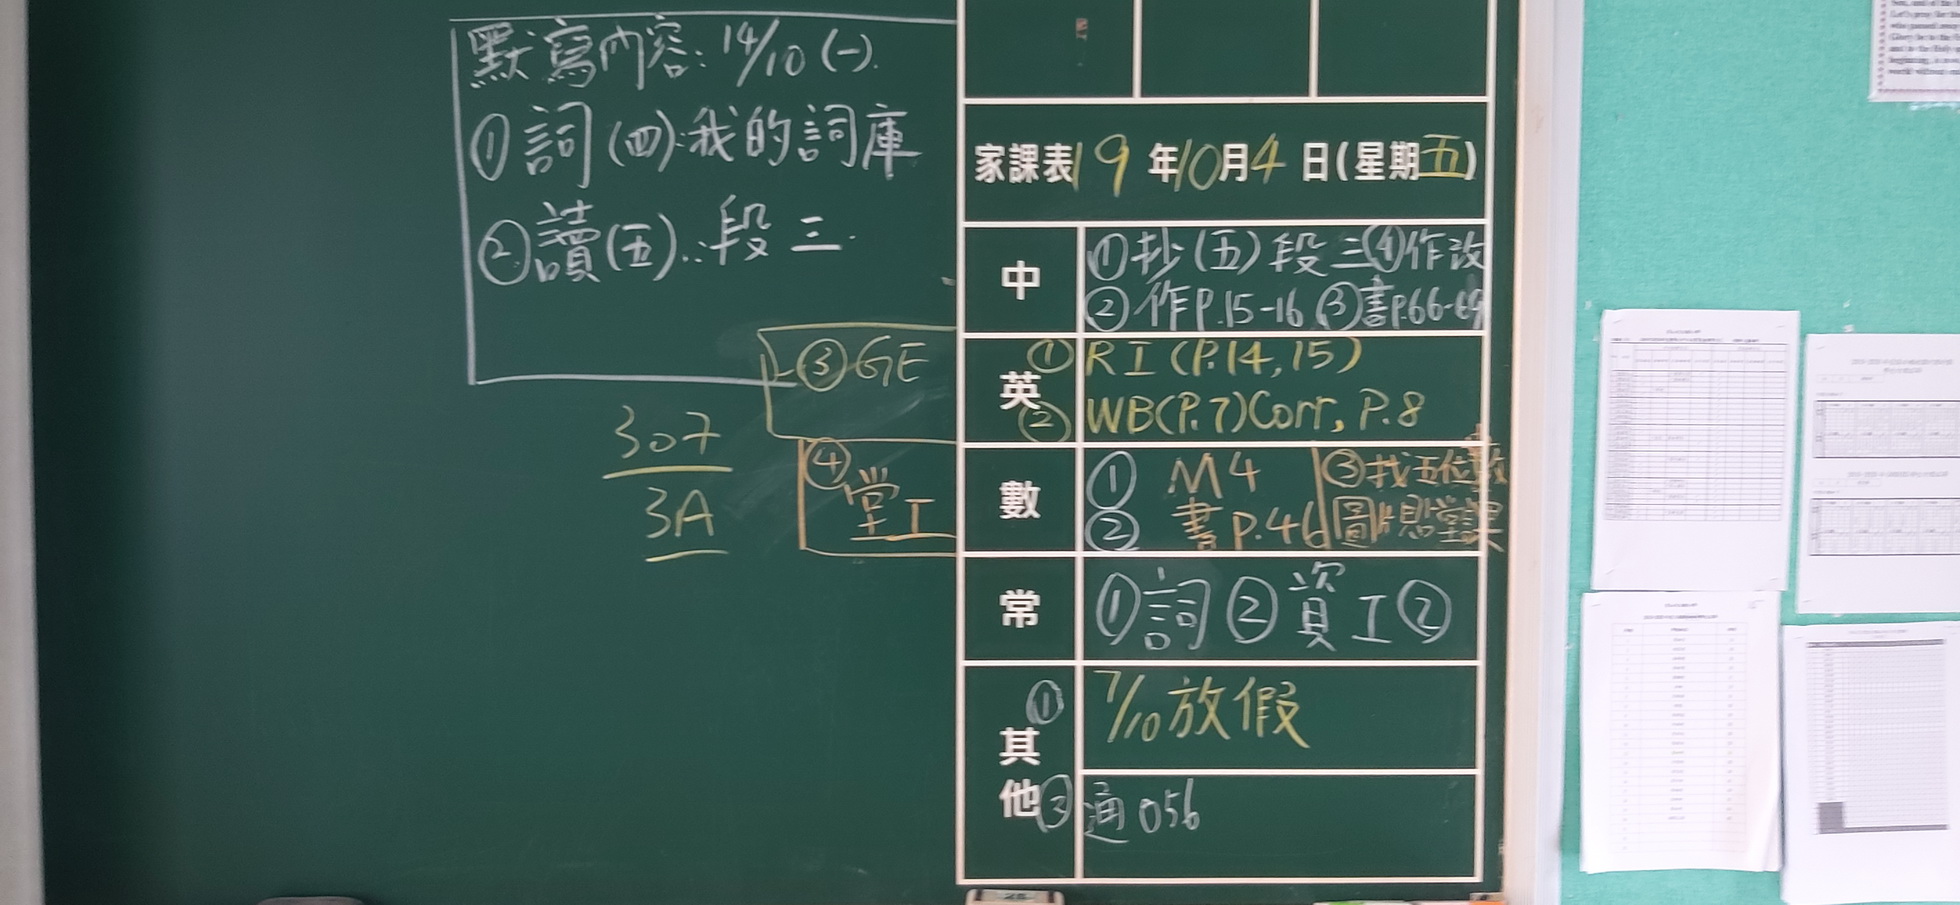 默寫內容：14/10 (一).
①詞(四)：我的詞庫
②讀(五)：段三.
307
3A
家課表19年10月4日(星期五)
中
①抄(五)段三④作改
②作P.15-16③書P.66-69
英
①RI(P.14,15)
②WB(P.7)Corr, P.8
③GE
數
①M4
②書P.46
③找五位數
圖片貼堂課
④堂工
常
①詞②資工②
其他
①7/10放假
通056